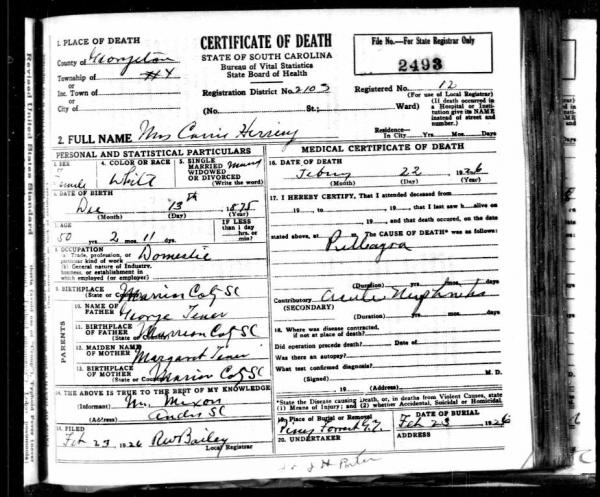 CERTIFICATE OF DEATH
STATE OF SOUTH CAROLINA
Bureau of Vital Statistics
State Board of Health
File No.—For State Registrar Only
2493
1. PLACE OF DEATH
County of Georgetown
Township of #4
or
Inc. Town of
or
City of
Registration District No. 2103
Registered No. 12
(For use of Local Registrar)
(No. St.; Ward)
(If death occurred in a Hospital or Institution give its NAME instead of street and number.)
2. FULL NAME Mrs Carrie
Residence— In City Yrs. Mos. Days
PERSONAL AND STATISTICAL PARTICULARS
3. SEX
Female
4. COLOR OR RACE
White
5. SINGLE
MARRIED
WIDOWED
OR DIVORCED
(Write the word)
6. DATE OF BIRTH
Dec 13th 1875
(Month) (Day) (Year)
7. AGE
50 yrs. 2 mos. 11 dys.
IF LESS than 1 day hrs. or min?
8. OCCUPATION
Domestic
(a) Trade, profession, or particular kind of work
(b) General nature of Industry, business, or establishment in which employed (or employer)
9. BIRTHPLACE Marion Co SC
(State or Country)
PARENTS
10. NAME OF FATHER George
11. BIRTHPLACE OF FATHER Marion Co SC
(State or Country)
12. MAIDEN NAME OF MOTHER Margaret
13. BIRTHPLACE OF MOTHER Marion Co SC
(State or Country)
14. THE ABOVE IS TRUE TO THE BEST OF MY KNOWLEDGE
(Informant) Mr.
(Address) SC
15. FILED Feb 23 1926 Bailey
Local Registrar
MEDICAL CERTIFICATE OF DEATH
16. DATE OF DEATH
22 1926
(Month) (Day) (Year)
17. I HEREBY CERTIFY, That I attended deceased from
19 , to , 19 , that I last saw h alive on
, 19 , and that death occurred, on the date
stated above, at M. The CAUSE OF DEATH* was as follows:
(Duration) yrs. mos. days.
Contributory Acute
(SECONDARY)
(Duration) yrs. mos. days.
18. Where was disease contracted,
if not at place of death?
Did operation precede death? Date of
Was there an autopsy?
What test confirmed diagnosis?
(Signed) M. D.
19 (Address)
*State the Disease causing Death, or, in deaths from Violent Causes, state (1) Means of Injury; and (2) whether Accidental, Suicidal or Homicidal.
19. Place of Burial or Removal
DATE OF BURIAL
Feb 23 1926
20. UNDERTAKER
ADDRESS
J H